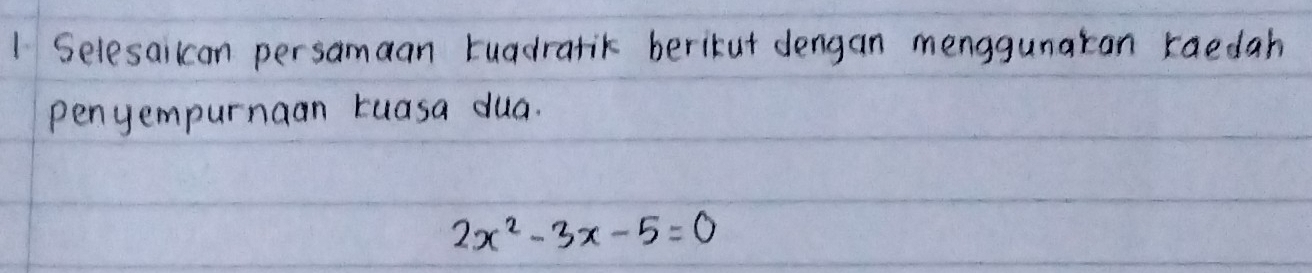 1. Selesaikan persamaan kuadratik berikut dengan menggunakan kaedah
penyempurnaan kuasa dua.
2x² - 3x - 5 = 0